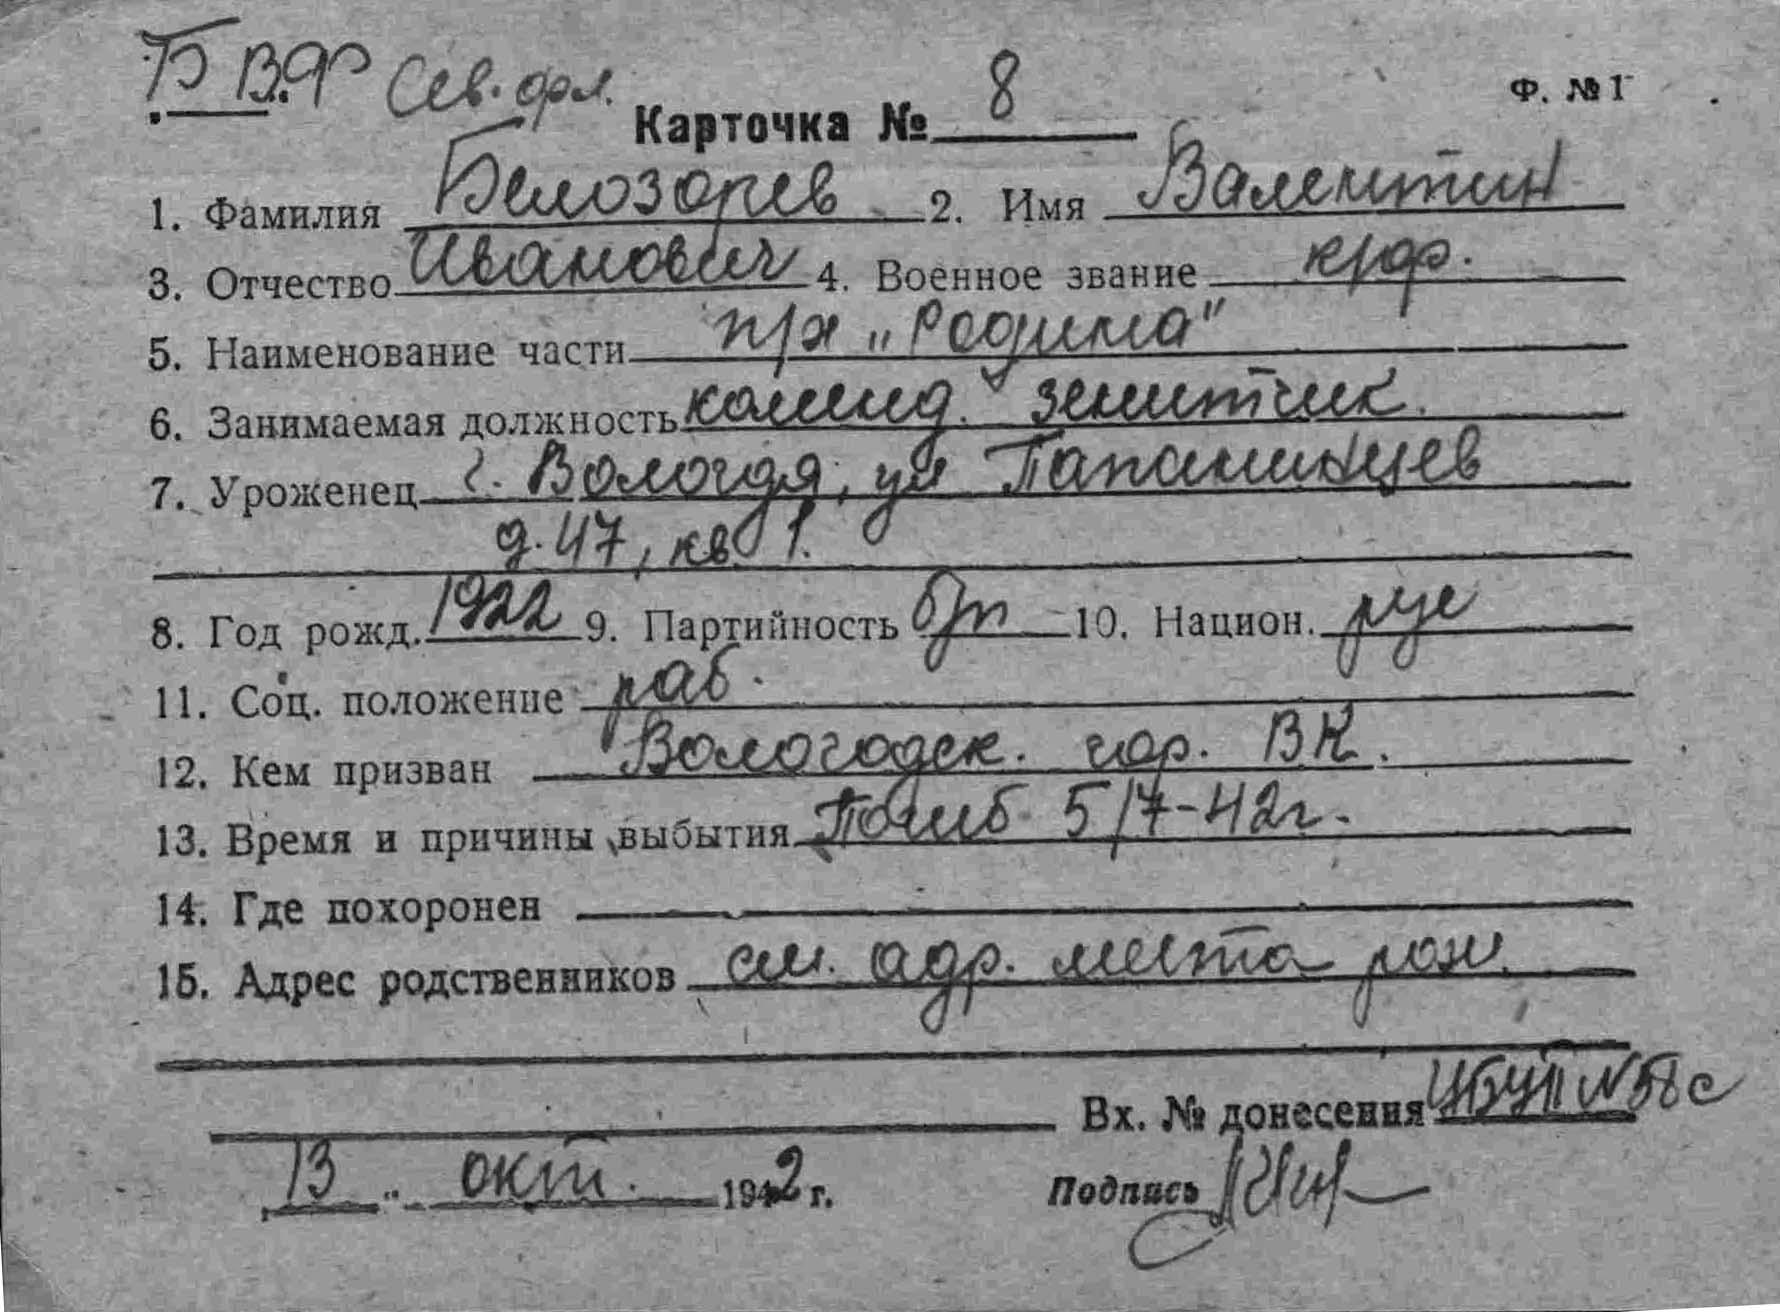 Б ВФ Сев. фл.
Ф. № 1
Карточка № 8
1. Фамилия Белозорев 2. Имя Валентин
3. Отчество Иванович 4. Военное звание крф.
5. Наименование части п/х „Родина"
6. Занимаемая должность команд. зенитчик.
7. Уроженец г. Вологда, ул Папанинцев
д. 47, кв 1.
8. Год рожд. 1922 9. Партийность б/п 10. Национ. рус
11. Соц. положение раб.
12. Кем призван Вологодск. гор. ВК.
13. Время и причины выбытия Погиб 5/7-42г.
14. Где похоронен
15. Адрес родственников см. адр. места рож.
Вх. № донесения ЦБУП №58с
13 „ окт. 1942 г. Подпись